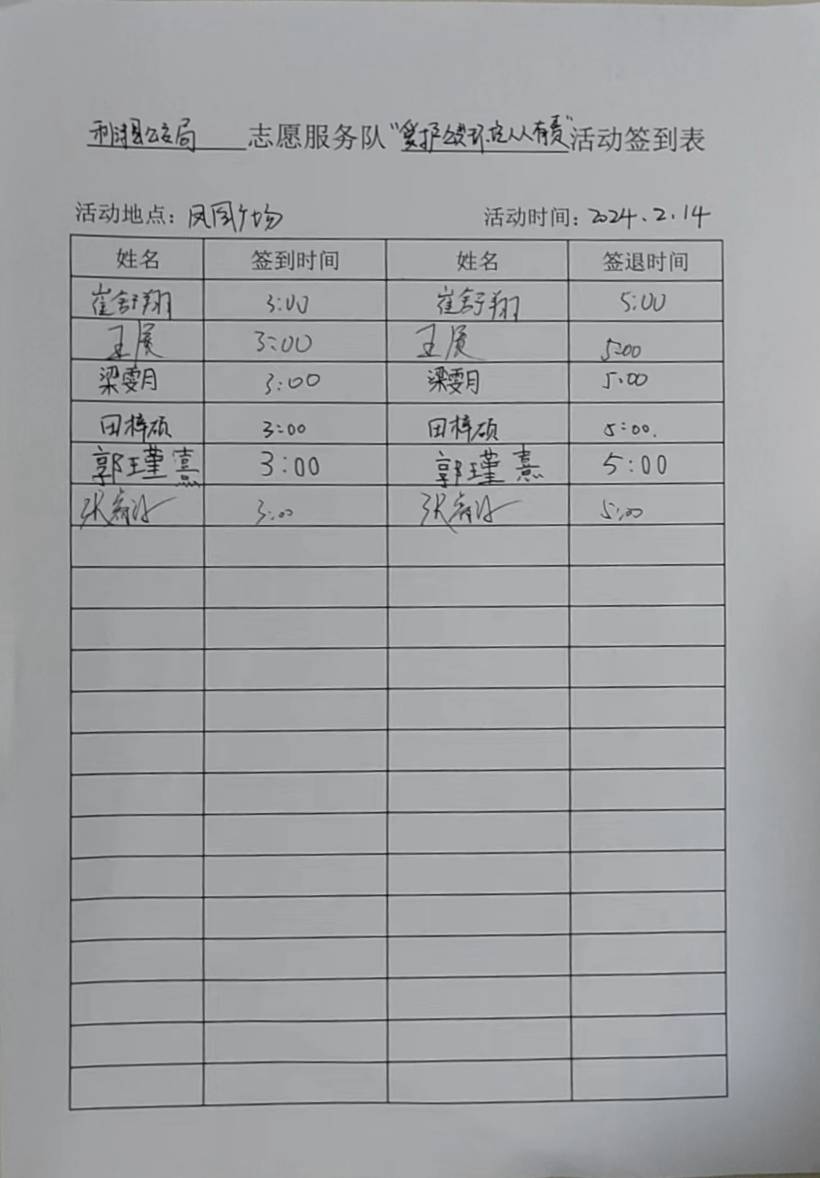 利津县公安局 志愿服务队“爱护公共环境人人有责”活动签到表
活动地点：凤凰广场 活动时间：2024.2.14
姓名 签到时间 姓名 签退时间
崔舒翔 3:00 崔舒翔 5:00
王展 3:00 王展 5:00
梁雯月 3:00 梁雯月 5:00
田梓硕 3:00 田梓硕 5:00.
郭瑾熹 3:00 郭瑾熹 5:00
张 3:00 张 5:00